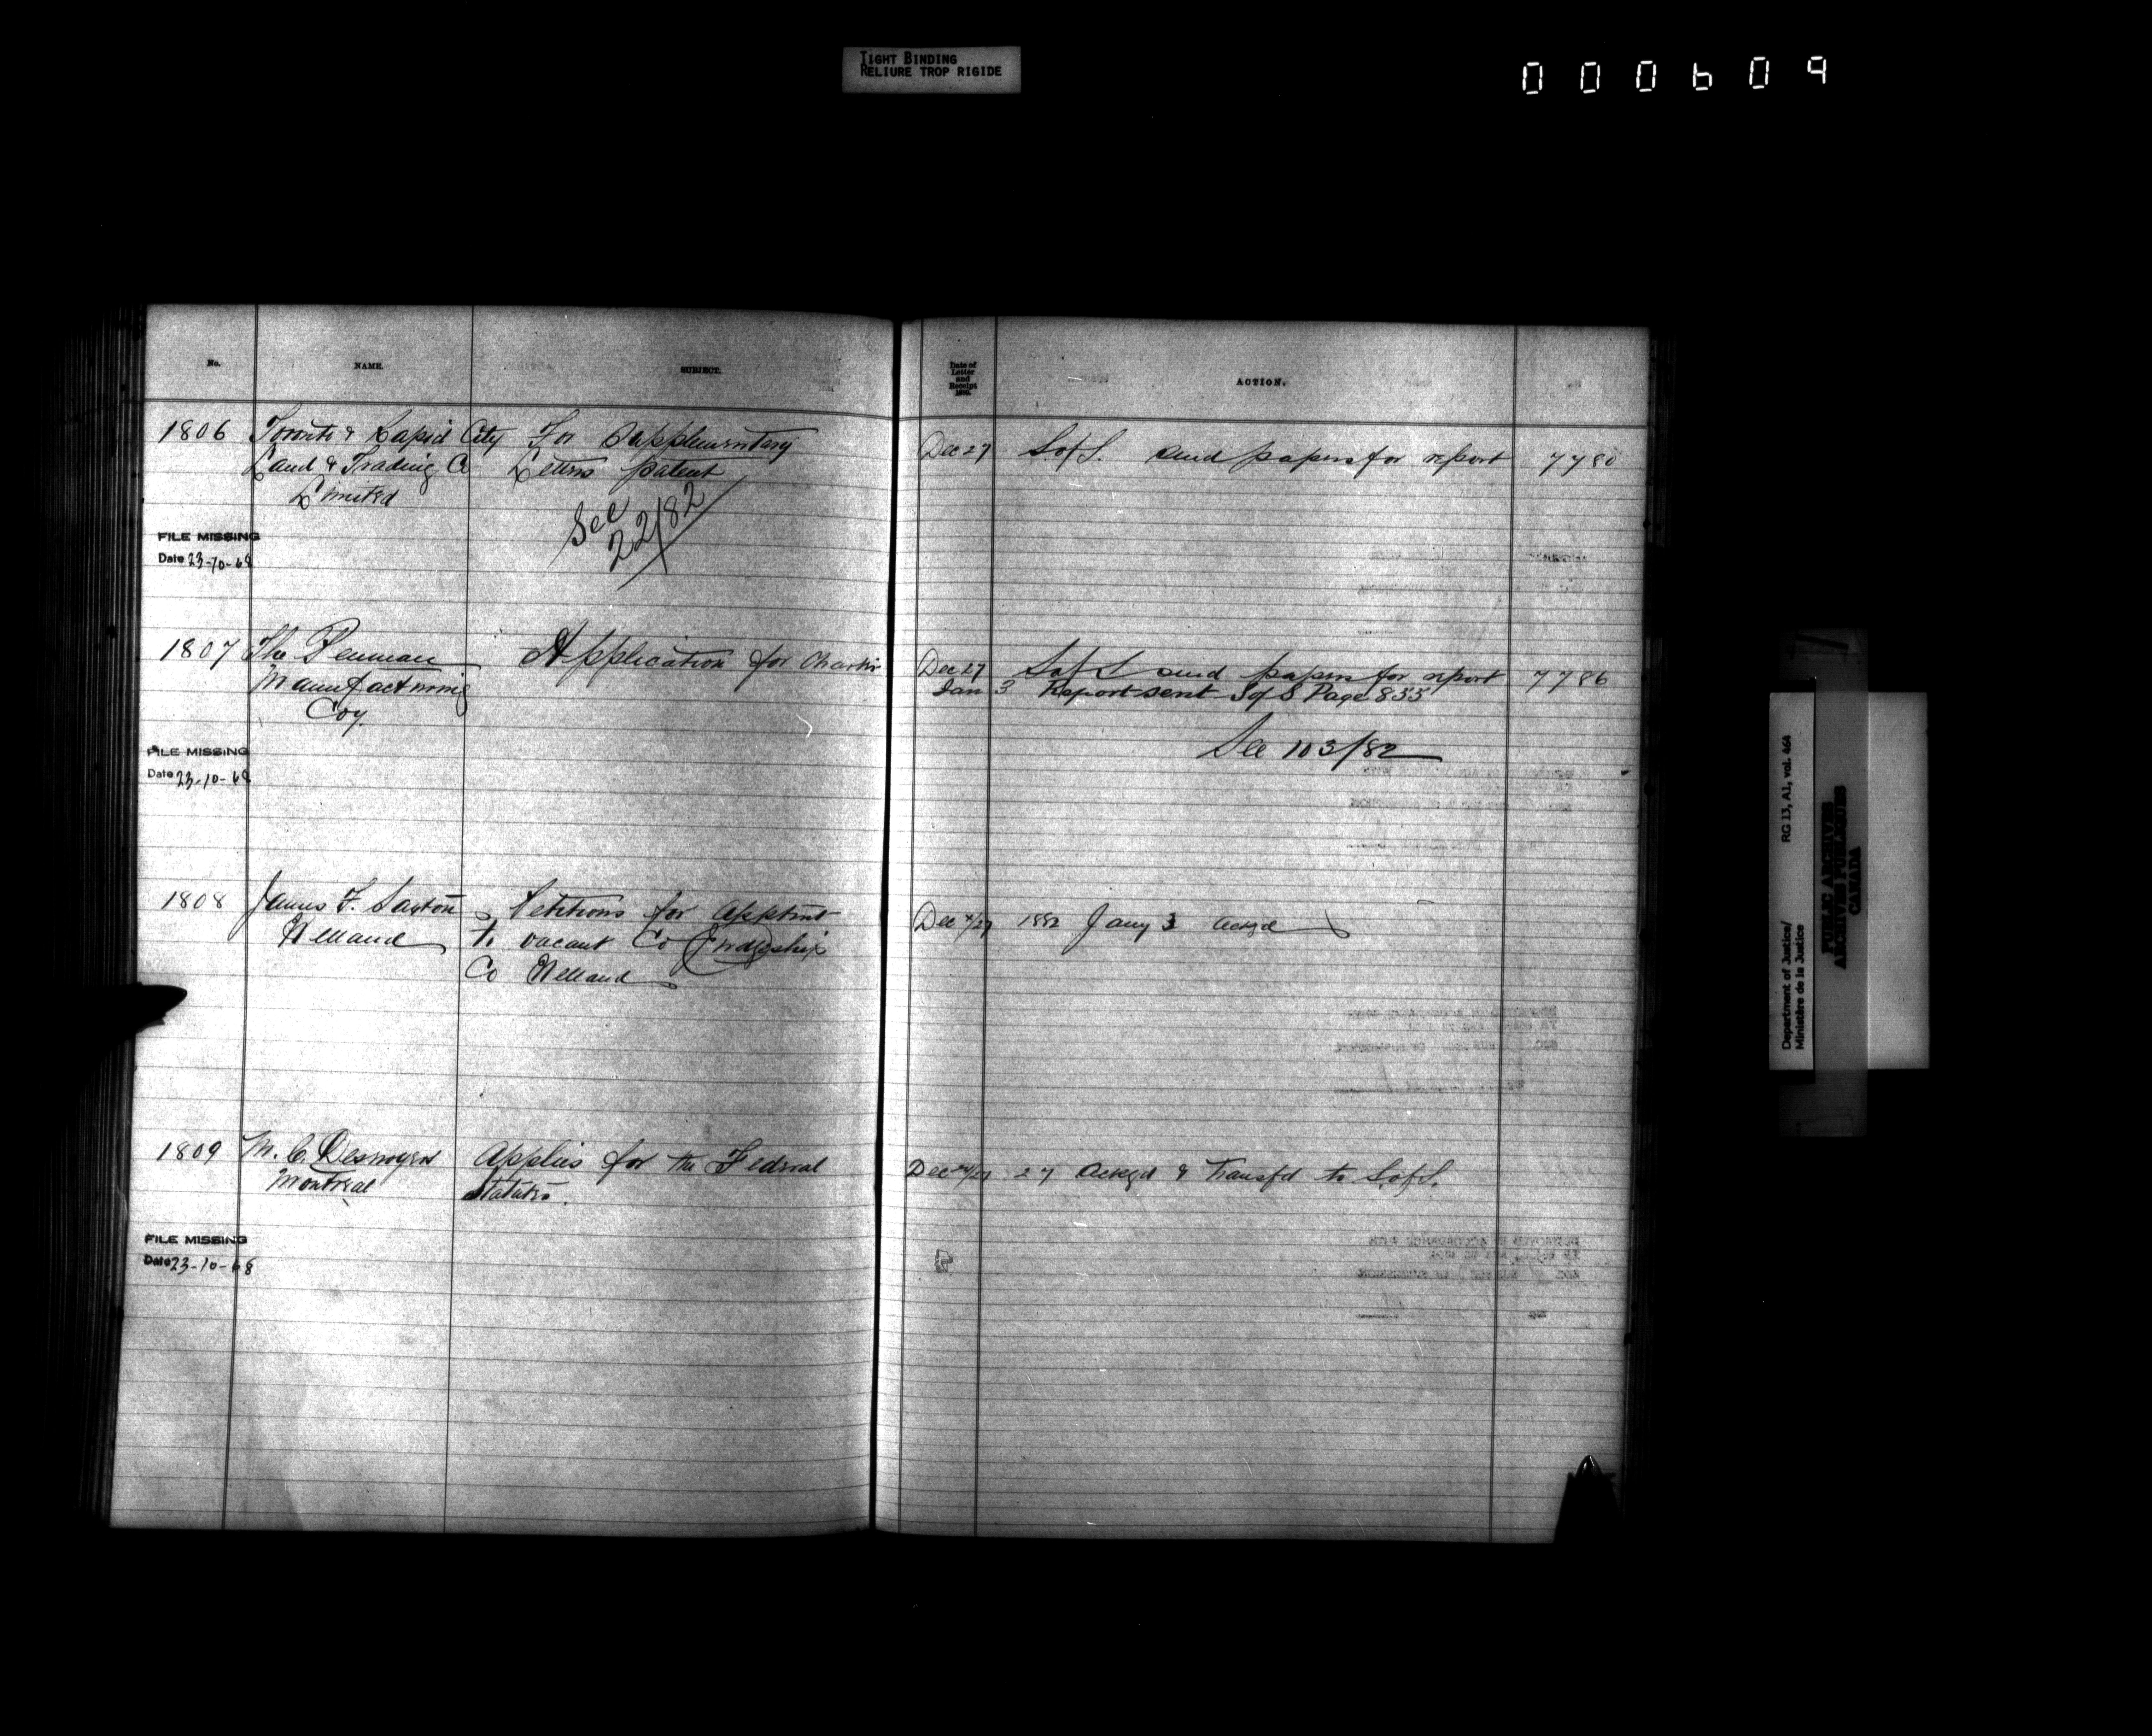 TIGHT BINDING
RELIURE TROP RIGIDE
000609
No. NAME. SUBJECT.
1806 Toronto & Rapid City For Supplementary
Land & Trading Co Letters patent
Limited
See
22/82
FILE MISSING
Date 23-10-68
1807 The Penman Application for Charter
Manufacturing
Coy.
FILE MISSING
Date 23-10-68
1808 James F. Saxton Petitions for apptmt
Welland to vacant Co Judgeship
Co Welland
1809 M. C. Desnoyers Applies for the Federal
Montreal Statutes.
FILE MISSING
Date 23-10-68
Date of
Letter
and
Receipt
ACTION.
Dec 27 S of S. send papers for report 7780
Dec 27 S of S send papers for report 7786
Jan 3 Report sent S of S Page 855
See 103/82
Dec /27 1882 Jany 3 ackgd
Dec 24/27 27 ackgd & transfd to S. of S.
Department of Justice/ RG 13, A1, vol. 464
Ministère de la Justice
PUBLIC ARCHIVES
ARCHIVES PUBLIQUES
CANADA